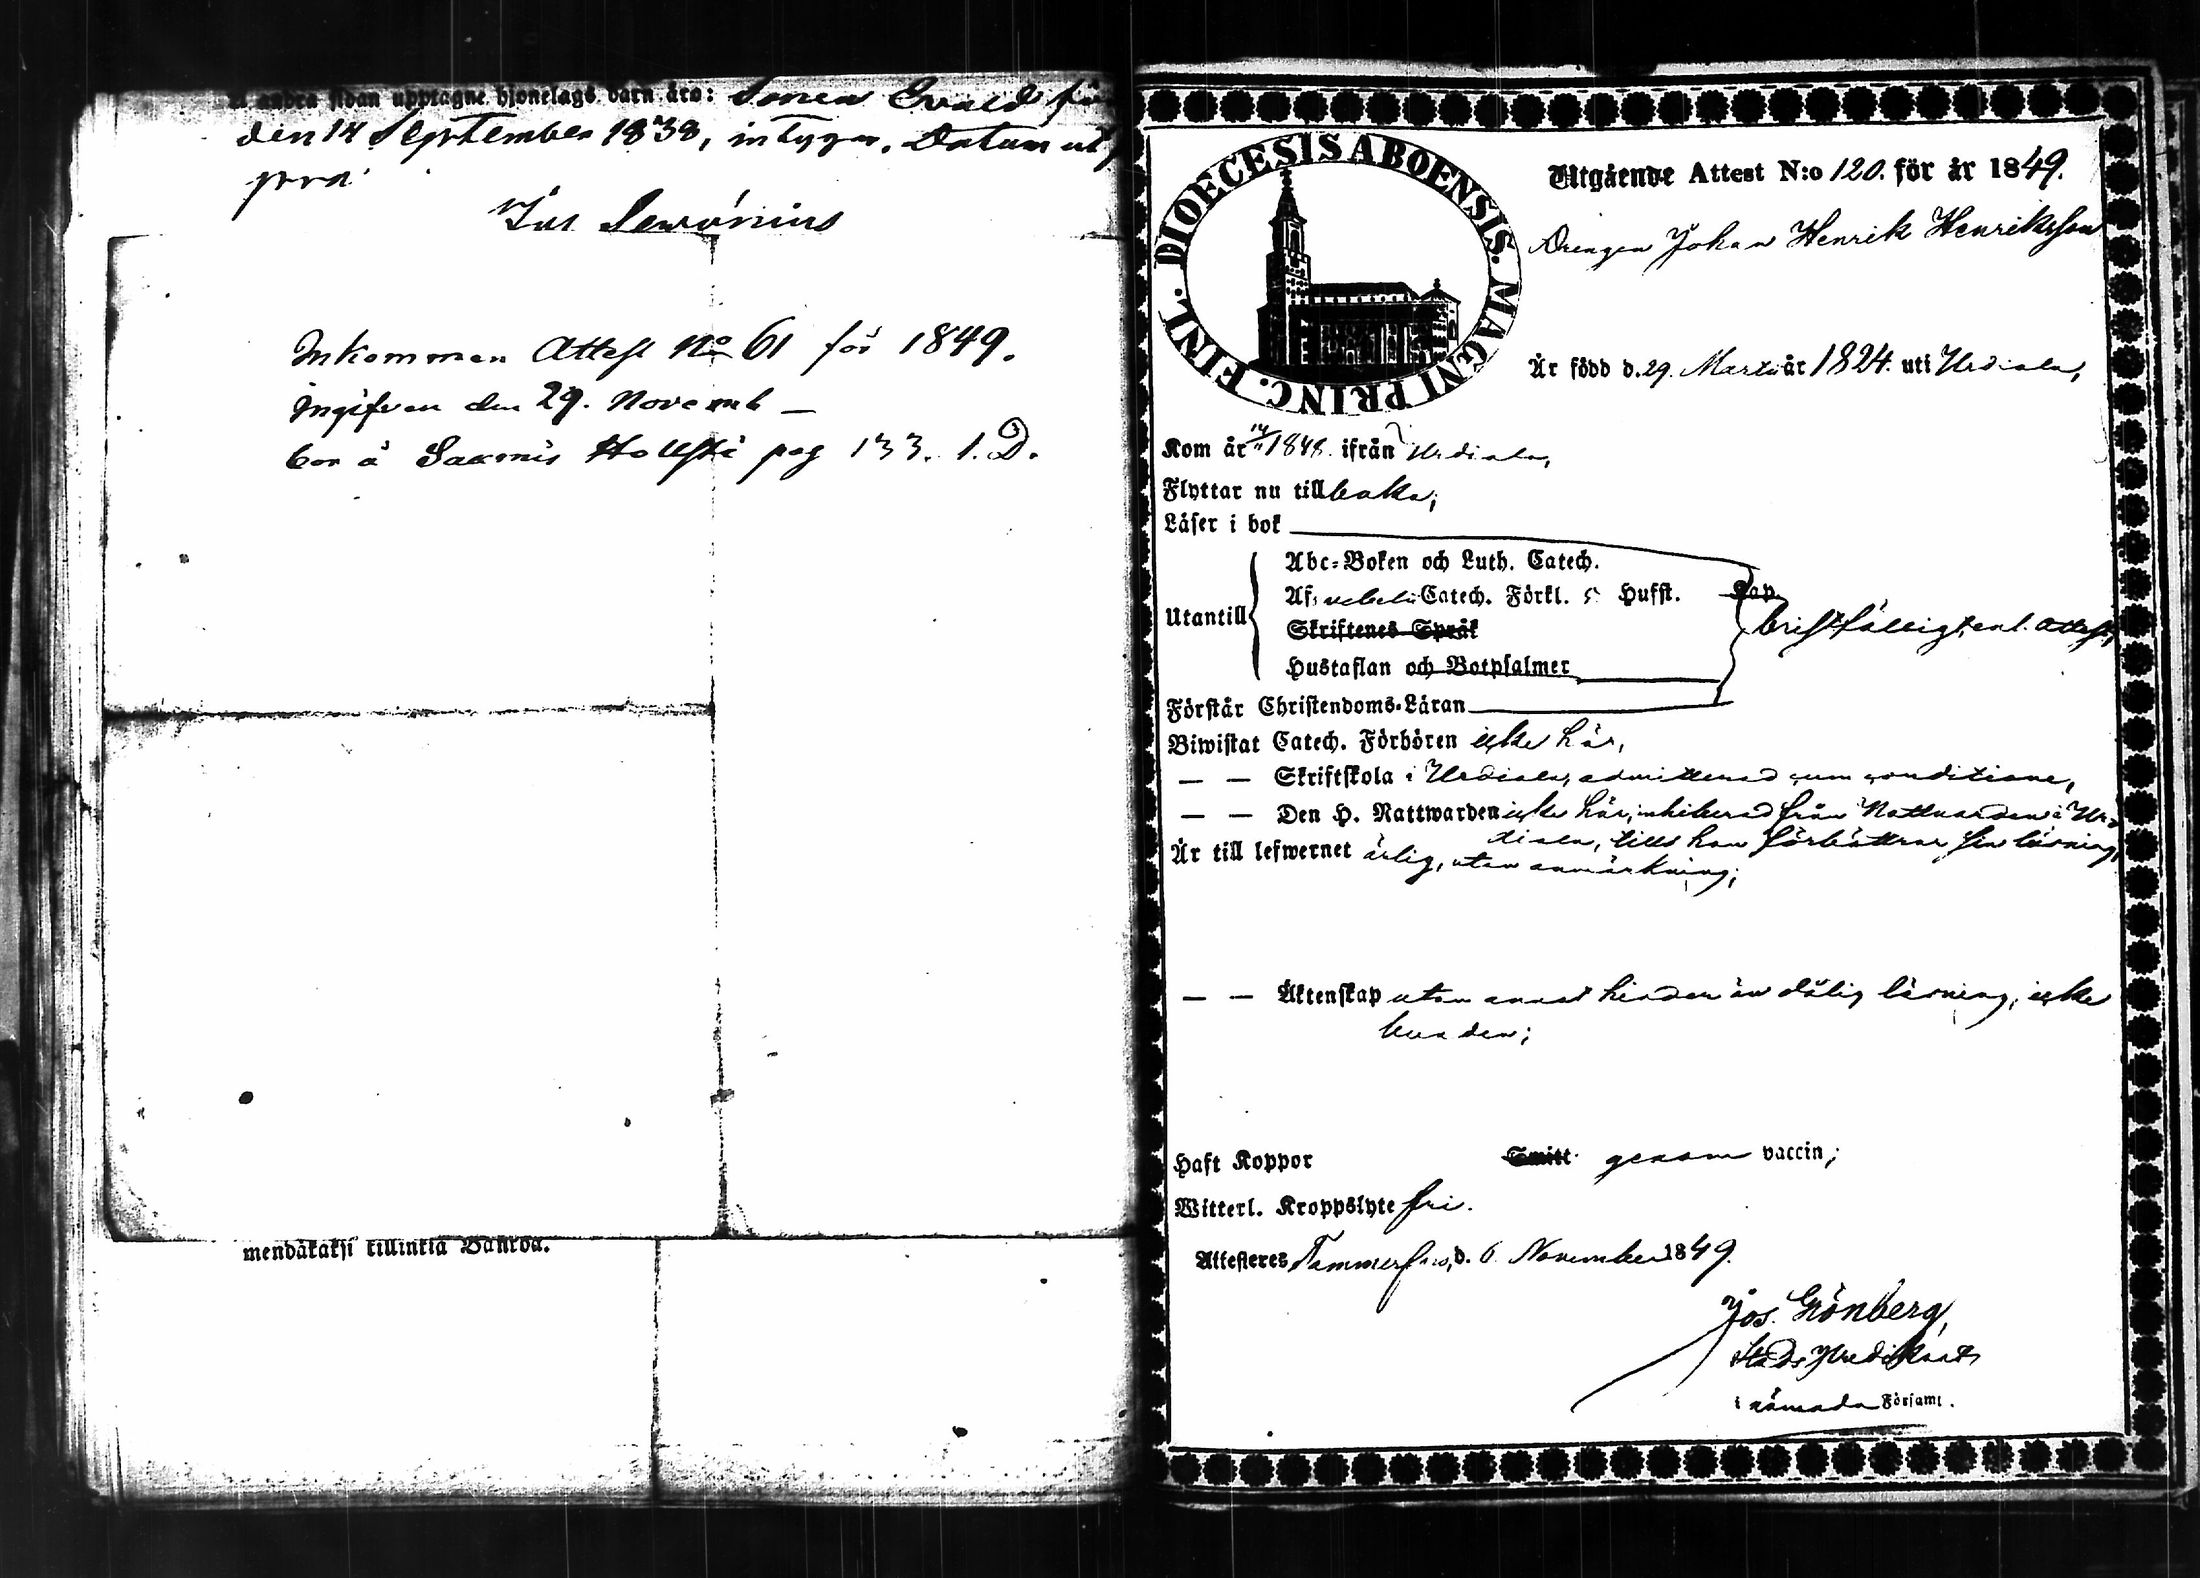 å andra sidan upptagne hjonelags barn äro: Sonen Evald fö
den 14 September 1838, intygar, Datum ut
pra
Joh
Inkommen Attest No 61 för 1849.
Ingifven den 29. Novemb —
bor å Saarnis Hollsti pag 133. 1. D.
mendäkaksi tillinkiä
DIOECESIS ABOENSIS. MAGNI PRINC. FINL.
Utgående Attest N:o 120. för år 1849.
Drengen Johan Henrik Henriksson
Är född d. 29. Martii år 1824. uti Urdiala,
Kom år 14/11 1848. ifrån Urdiala,
Flyttar nu tillbaka;
Läser i bok
Utantill
Abc-Boken och Luth. Catech.
Af: Catech. Förkl. 5 Hufst. Kap.
Skriftenes Språk
bristfälligt, enl. attest,
Hustaflan och Botpsalmer
Förstår Christendoms-Läran
Biwistat Catech. Förhören icke här,
— — Skriftskola i Urdiala, admitterad cum conditione,
— — Den H. Nattwarden icke här, inhiberad från Nattvarden i Ur-
diala, tills han förbättrar sin läsning,
Är till lefwernet ärlig, utan anmärkning;
— — Äktenskap utan annat hinder än dålig läsning, icke
bunden;
Haft Koppor Smitt genom vaccin;
Witterl. Kroppslyte fri.
Attesteres Tammerfors, d. 6 November 1849.
Jos. Grönberg,
Stads Predikant
i nämnda Församl.